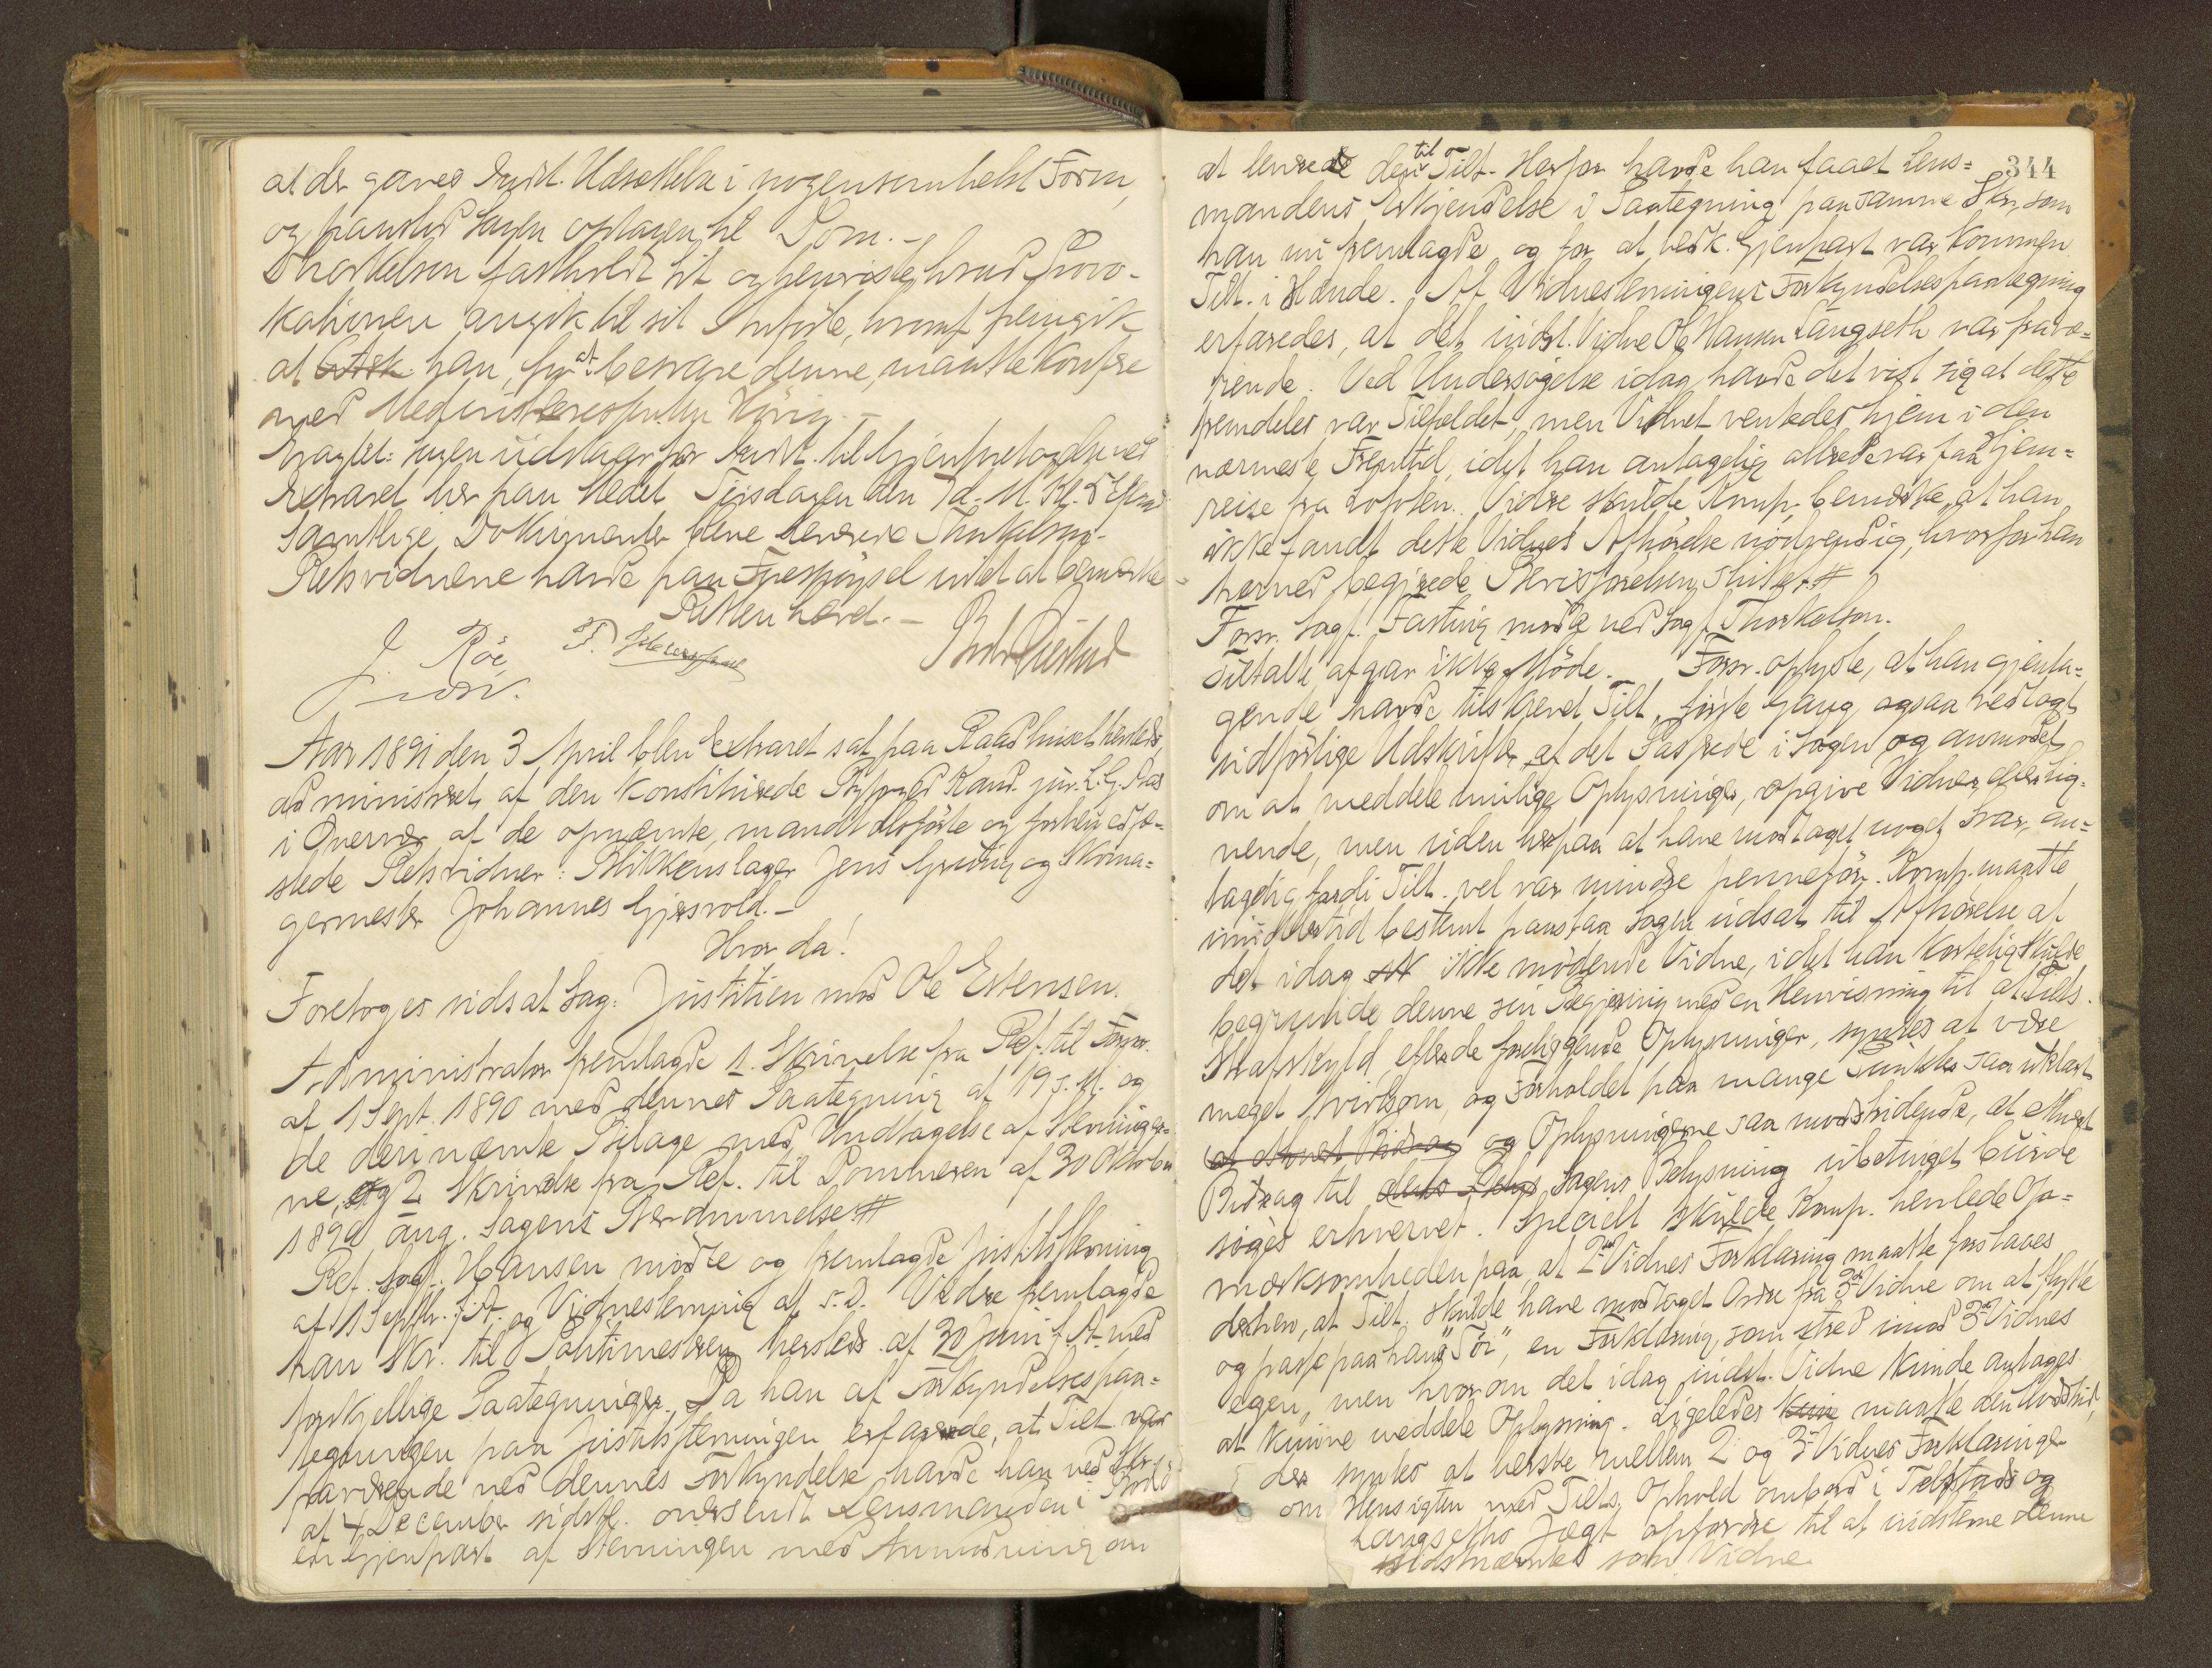 at der gaves Indst. Udsættelse i nogensomhelst Form,
og paastod Sagen optagen til Dom.-
Thorkelsen fastholdt sit og henviste hvad Provo-
kationen angik til sit Anførte, hvoraf fremgik
at han, for at besvare denne, maatte Konferere
med
Eragtet: Sagen udstaar for Indst. til Gjenforetagelse ved
Extraret her paa Stedet Tirsdagen den 7 d. M. Kl. 5 Efterm
Samtlige Dokumenter bleve leverede Thorkelsen.
Retsvidnerne havde paa Forespørgsel intet at bemærke
Retten hævet.-
J. Röe
Aar 1891 den 3 April blev Extraret sat paa Raadhuset hersteds,
administreret af den Konstituerede Byfoged Kand. jur. L. G.
i Overvær af de opnævnte, mandtalsførte og forhen edfæ-
stede Retsvidner: Blikkenslager Jens Grøtting og Skoma-
germester Johannes Gjersvold.-
Hvor da!
Foretoges udsat Sag: Justitien mod Ole Estensen.
Administrator fremlagde 1. Skrivelse fra Ref. til Forsv.
af 1 Sept. 1890 med dennes Paategning af 19 s. M. og
de deri nævnte Bilage med Undtagelse af Stevninger-
ne, og 2 Skrivelse fra Ref. til Dommeren af 30 Oktober
1890 ang. Sagens Berammelse #
Ref. Sagf. Hansen mødte og fremlagde Justitsstevning
af 1 Septbr. f. A. og Vidnestevning af s. D. Videre fremlagde
han Skr. til Politimesteren hersteds af 30 Juni f. A. med
forskjellige Paategninger. Da han af Forkyndelsespaa-
tegningen paa Justitsstevningen erfarede, at Tilt. var
fraværende ved dennes Forkyndelse havde han ved Skr.
af 4 December sidstl. oversendt Lensmanden i
en Gjenpart af Stevningen med Anmodning om
344
at levere den til Tilt. Herfor havde han faaet Lens-
mandens Erkjendelse i Paategning paa samme Skr, som
han nu fremlagde og for at vedk. Gjenpart var kommen
Tilt. i Hænde. Af Vidnestevningens Forkyndelsespaategning
erfaredes, at det indst. Vidne Ole Hansen Langseth var fravæ-
rende. Ved Undersøgelse idag havde det vist sig at dette
fremdeles var Tilfældet, men Vidnet ventedes hjem i den
nærmeste Fremtid, idet han antagelig allerede var paa Hjem-
reise fra Lofoten. Videre skulde Komp. bemærke, at han
ikke fandt dette Vidnes Afhørelse nødvendig, hvorfor han
hermed begjærede Bevisførelsen sluttet #
Forsv. Sagf. Fasting mødte ved Sagf. Thorkelson.
Tiltalte afgav ikke Møde. - Forsv. oplyste, at han gjenta-
gende havde tilskrevet Tilt., første Gang ogsaa vedlagt
vidførlige Udskrifter af det Passerede i Sagen og anmodet
om at meddele mulige Oplysninger, opgive Vidner ellerlig-
nende, men uden herpaa at have modtaget noget Svar, an-
tagelig fordi Tilt. vel var mindre penneför. Komp. maatte
imidlertid bestemt paastaa Sagen udsat til Afhørelse af
det idag ikke mødende Vidne, idet han kortelig skulde
begrunde denne sin Begjæring med en Henvisning til at Tilts.
Strafskyld, efter de foreliggende Oplysninger, syntes at være
meget tvivlsom, og Forholdet paa mange Punkter saa uklart
og Oplysningerne saa modstridende, at ethvert
Bidrag til Sagens Belysning ubetinget burde
søges erhvervet. Specielt skulde Komp. henlede Op-
mærksomheden paa, at 2det Vidnes Forklaring maatte forstaaes
derhen, at Tilt. skulde have modtaget Ordre fra 3die Vidne om at flytte
og passe paa hans "Tøi", en Forklaring, som stred imod 3die Vidnes
egen, men hvorom det idag indst. Vidne kunde antages
at kunne meddele Oplysning. Ligeledes maatte den Modstrid,
der syntes at herske mellem 2 og 3die Vidnes Forklaringer
om Hensigten med Tilts. Ophold ombord i Telstads og
Langseths Jægt opfordre til at indstevne denne
sidstnævnte som Vidne